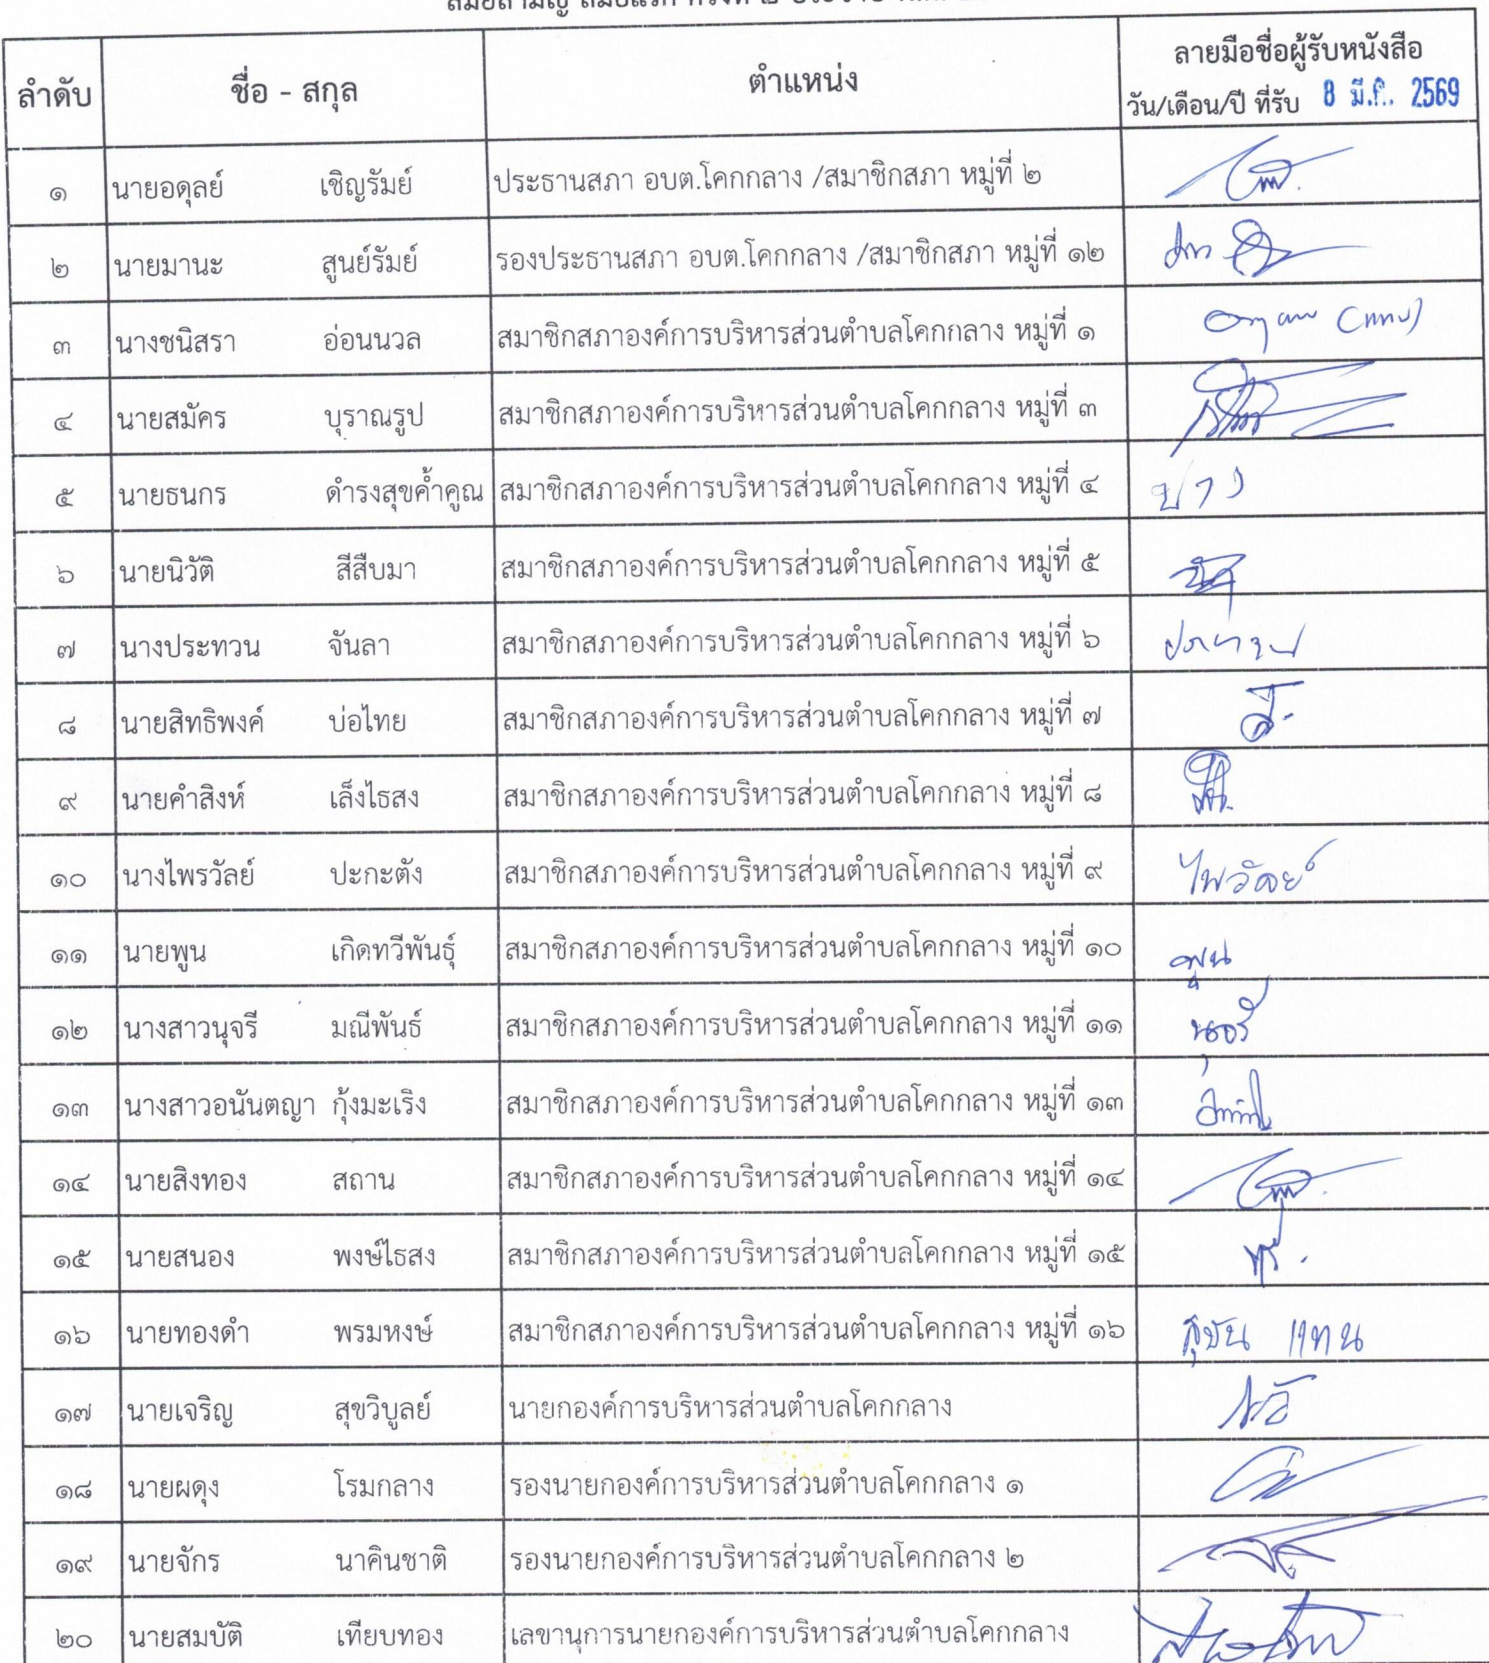 ลำดับ ชื่อ - สกุล ตำแหน่ง ลายมือชื่อผู้รับหนังสือ
วัน/เดือน/ปี ที่รับ 8 มี.ค. 2569
๑ นายอดุลย์ เชิญรัมย์ ประธานสภา อบต.โคกกลาง /สมาชิกสภา หมู่ที่ ๒
๒ นายมานะ สูนย์รัมย์ รองประธานสภา อบต.โคกกลาง /สมาชิกสภา หมู่ที่ ๑๒
๓ นางชนิสรา อ่อนนวล สมาชิกสภาองค์การบริหารส่วนตำบลโคกกลาง หมู่ที่ ๑
๔ นายสมัคร บุราณรูป สมาชิกสภาองค์การบริหารส่วนตำบลโคกกลาง หมู่ที่ ๓
๕ นายธนกร ดำรงสุขค้ำคูณ สมาชิกสภาองค์การบริหารส่วนตำบลโคกกลาง หมู่ที่ ๔
๖ นายนิวัติ สีสืบมา สมาชิกสภาองค์การบริหารส่วนตำบลโคกกลาง หมู่ที่ ๕
๗ นางประทวน จันลา สมาชิกสภาองค์การบริหารส่วนตำบลโคกกลาง หมู่ที่ ๖
๘ นายสิทธิพงค์ บ่อไทย สมาชิกสภาองค์การบริหารส่วนตำบลโคกกลาง หมู่ที่ ๗
๙ นายคำสิงห์ เล็งไธสง สมาชิกสภาองค์การบริหารส่วนตำบลโคกกลาง หมู่ที่ ๘
๑๐ นางไพรวัลย์ ปะกะตัง สมาชิกสภาองค์การบริหารส่วนตำบลโคกกลาง หมู่ที่ ๙ ไพวัลย์
๑๑ นายพูน เกิดทวีพันธุ์ สมาชิกสภาองค์การบริหารส่วนตำบลโคกกลาง หมู่ที่ ๑๐ พูน
๑๒ นางสาวนุจรี มณีพันธ์ สมาชิกสภาองค์การบริหารส่วนตำบลโคกกลาง หมู่ที่ ๑๑ นุจรี
๑๓ นางสาวอนันตญา กุ้งมะเริง สมาชิกสภาองค์การบริหารส่วนตำบลโคกกลาง หมู่ที่ ๑๓
๑๔ นายสิงทอง สถาน สมาชิกสภาองค์การบริหารส่วนตำบลโคกกลาง หมู่ที่ ๑๔
๑๕ นายสนอง พงษ์ไธสง สมาชิกสภาองค์การบริหารส่วนตำบลโคกกลาง หมู่ที่ ๑๕
๑๖ นายทองดำ พรมหงษ์ สมาชิกสภาองค์การบริหารส่วนตำบลโคกกลาง หมู่ที่ ๑๖ แทน
๑๗ นายเจริญ สุขวิบูลย์ นายกองค์การบริหารส่วนตำบลโคกกลาง
๑๘ นายผดุง โรมกลาง รองนายกองค์การบริหารส่วนตำบลโคกกลาง ๑
๑๙ นายจักร นาคินชาติ รองนายกองค์การบริหารส่วนตำบลโคกกลาง ๒
๒๐ นายสมบัติ เทียบทอง เลขานุการนายกองค์การบริหารส่วนตำบลโคกกลาง